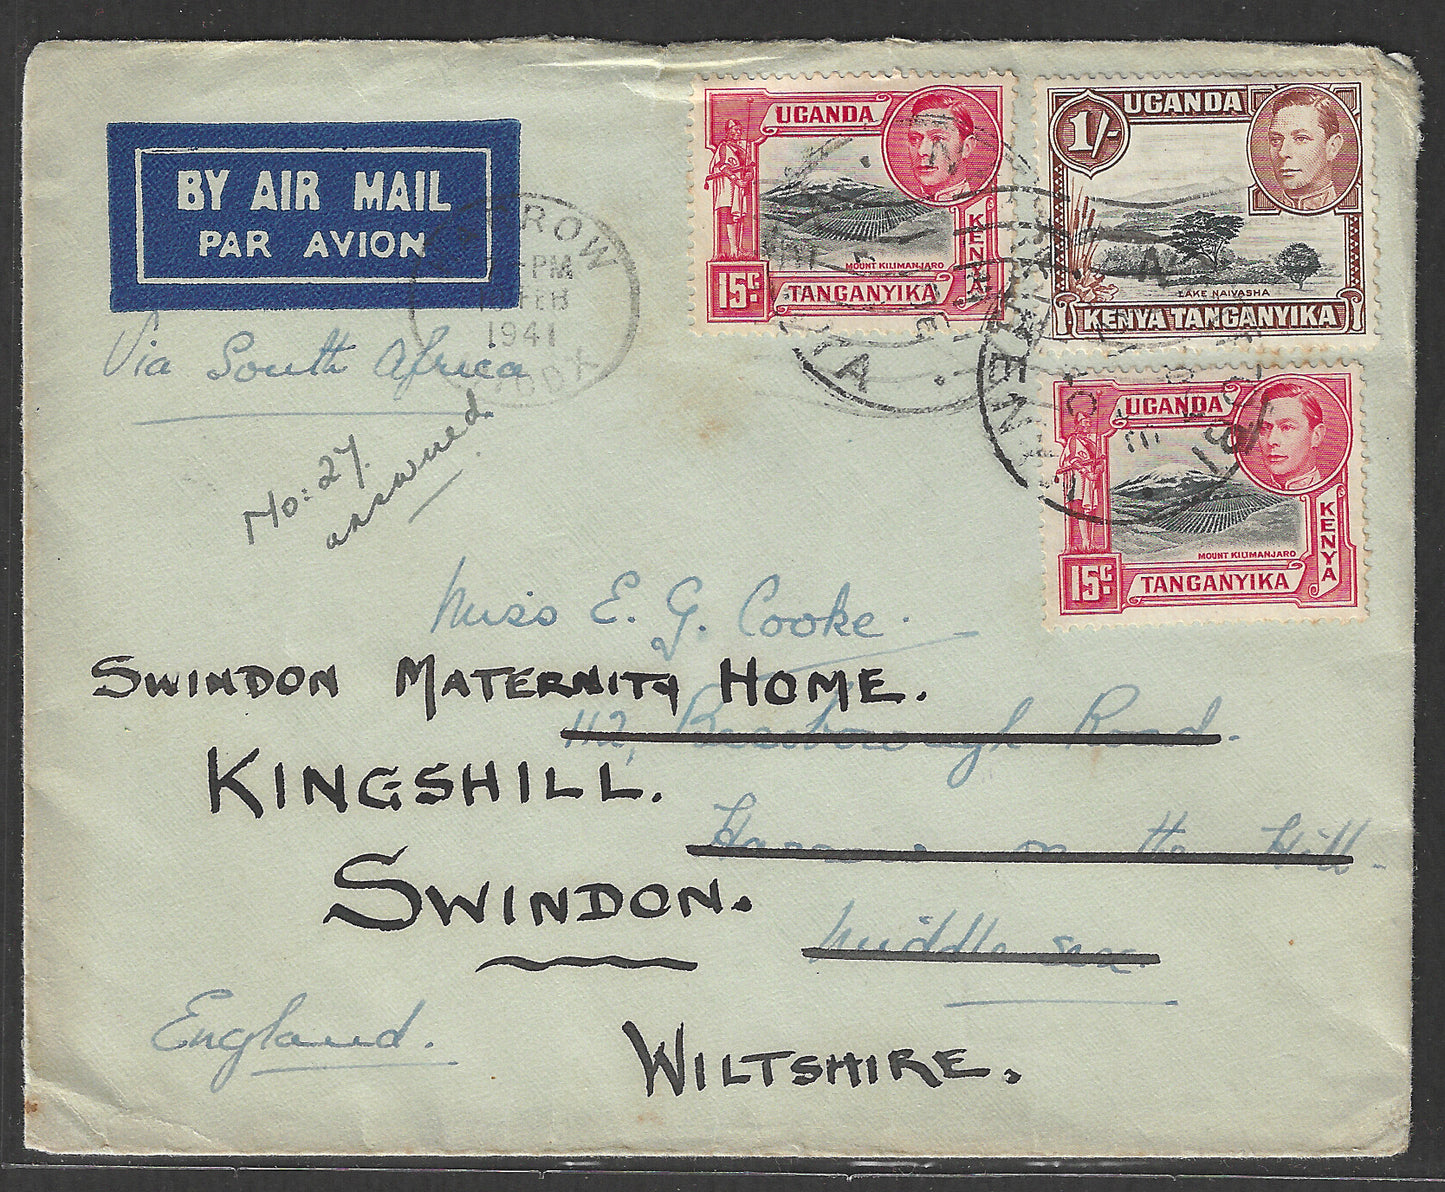 BY AIR MAIL
PAR AVION
UGANDA
KENYA
MOUNT KILIMANJARO
15c
TANGANYIKA
1/-
UGANDA
LAKE NAIVASHA
KENYA TANGANYIKA
UGANDA
KENYA
MOUNT KILIMANJARO
15c
TANGANYIKA
PM
FEB
1941
Via South Africa
No: 27.
answered.
Miss E. G. Cooke.
SWINDON MATERNITY HOME.
112, Road.
KINGSHILL.
on the Hill
SWINDON.
Middlesex.
England.
WILTSHIRE.